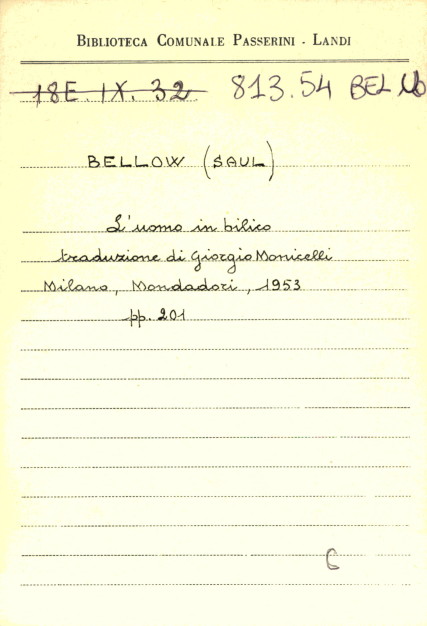 BIBLIOTECA COMUNALE PASSERINI - LANDI
18E. IX. 32 813.54 BEL Ub
BELLOW (SAUL)
L'uomo in bilico
traduzione di Giorgio Monicelli
Milano, Mondadori, 1953
pp. 201
6